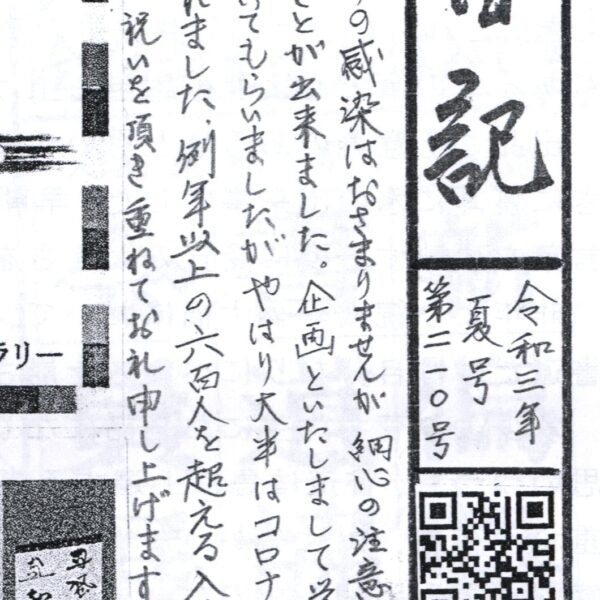 記
令和三年
夏号
第二一〇号
の感染はおさまりませんが 細心の注意
とが出来ました。企画といたしまして
てもらいましたがやはり大半はコロナ
れました、例年以上の六百人を超える入
祝いを頂き重ねてお礼申し上げます
ラリー